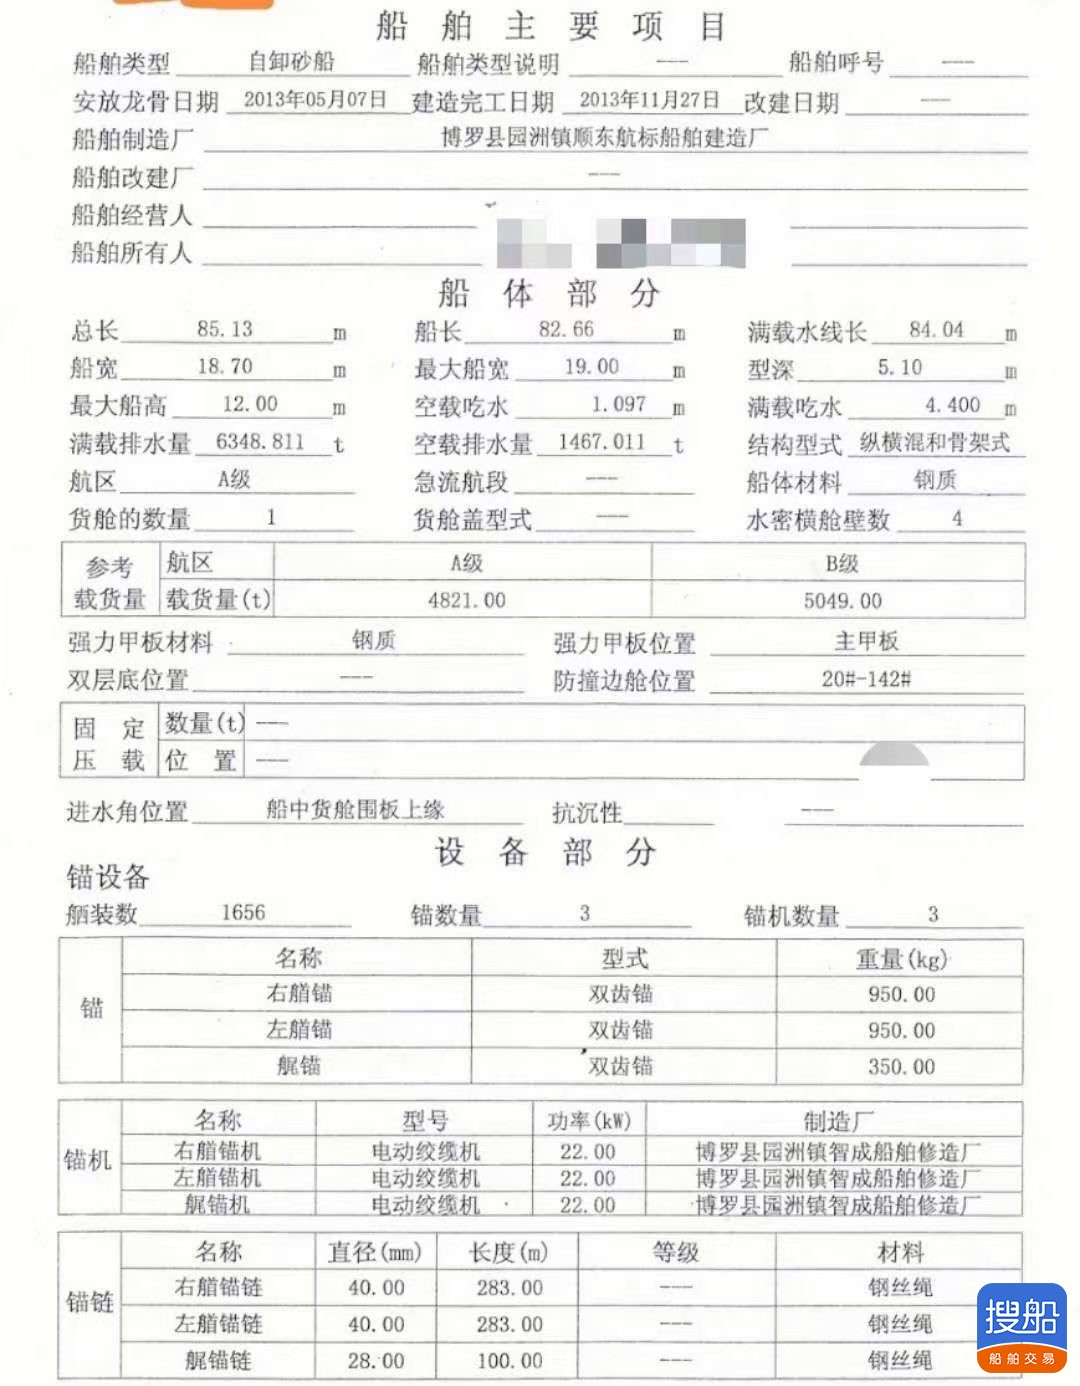 船舶主要项目
船舶类型 自卸砂船 船舶类型说明 --- 船舶呼号 ---
安放龙骨日期 2013年05月07日 建造完工日期 2013年11月27日 改建日期 ---
船舶制造厂 博罗县园洲镇顺东航标船舶建造厂
船舶改建厂 ---
船舶经营人
船舶所有人
船体部分
总长 85.13 m 船长 82.66 m 满载水线长 84.04 m
船宽 18.70 m 最大船宽 19.00 m 型深 5.10 m
最大船高 12.00 m 空载吃水 1.097 m 满载吃水 4.400 m
满载排水量 6348.811 t 空载排水量 1467.011 t 结构型式 纵横混和骨架式
航区 A级 急流航段 --- 船体材料 钢质
货舱的数量 1 货舱盖型式 --- 水密横舱壁数 4
参考 航区 A级 B级
载货量 载货量(t) 4821.00 5049.00
强力甲板材料 钢质 强力甲板位置 主甲板
双层底位置 --- 防撞边舱位置 20#-142#
固定 数量(t) ---
压载 位置 ---
进水角位置 船中货舱围板上缘 抗沉性 ---
设备部分
锚设备
舾装数 1656 锚数量 3 锚机数量 3
锚 名称 型式 重量(kg)
右艏锚 双齿锚 950.00
左艏锚 双齿锚 950.00
艉锚 双齿锚 350.00
锚机 名称 型号 功率(kW) 制造厂
右艏锚机 电动绞缆机 22.00 博罗县园洲镇智成船舶修造厂
左艏锚机 电动绞缆机 22.00 博罗县园洲镇智成船舶修造厂
艉锚机 电动绞缆机 22.00 博罗县园洲镇智成船舶修造厂
锚链 名称 直径(mm) 长度(m) 等级 材料
右艏锚链 40.00 283.00 --- 钢丝绳
左艏锚链 40.00 283.00 --- 钢丝绳
艉锚链 28.00 100.00 --- 钢丝绳
搜船
船舶交易